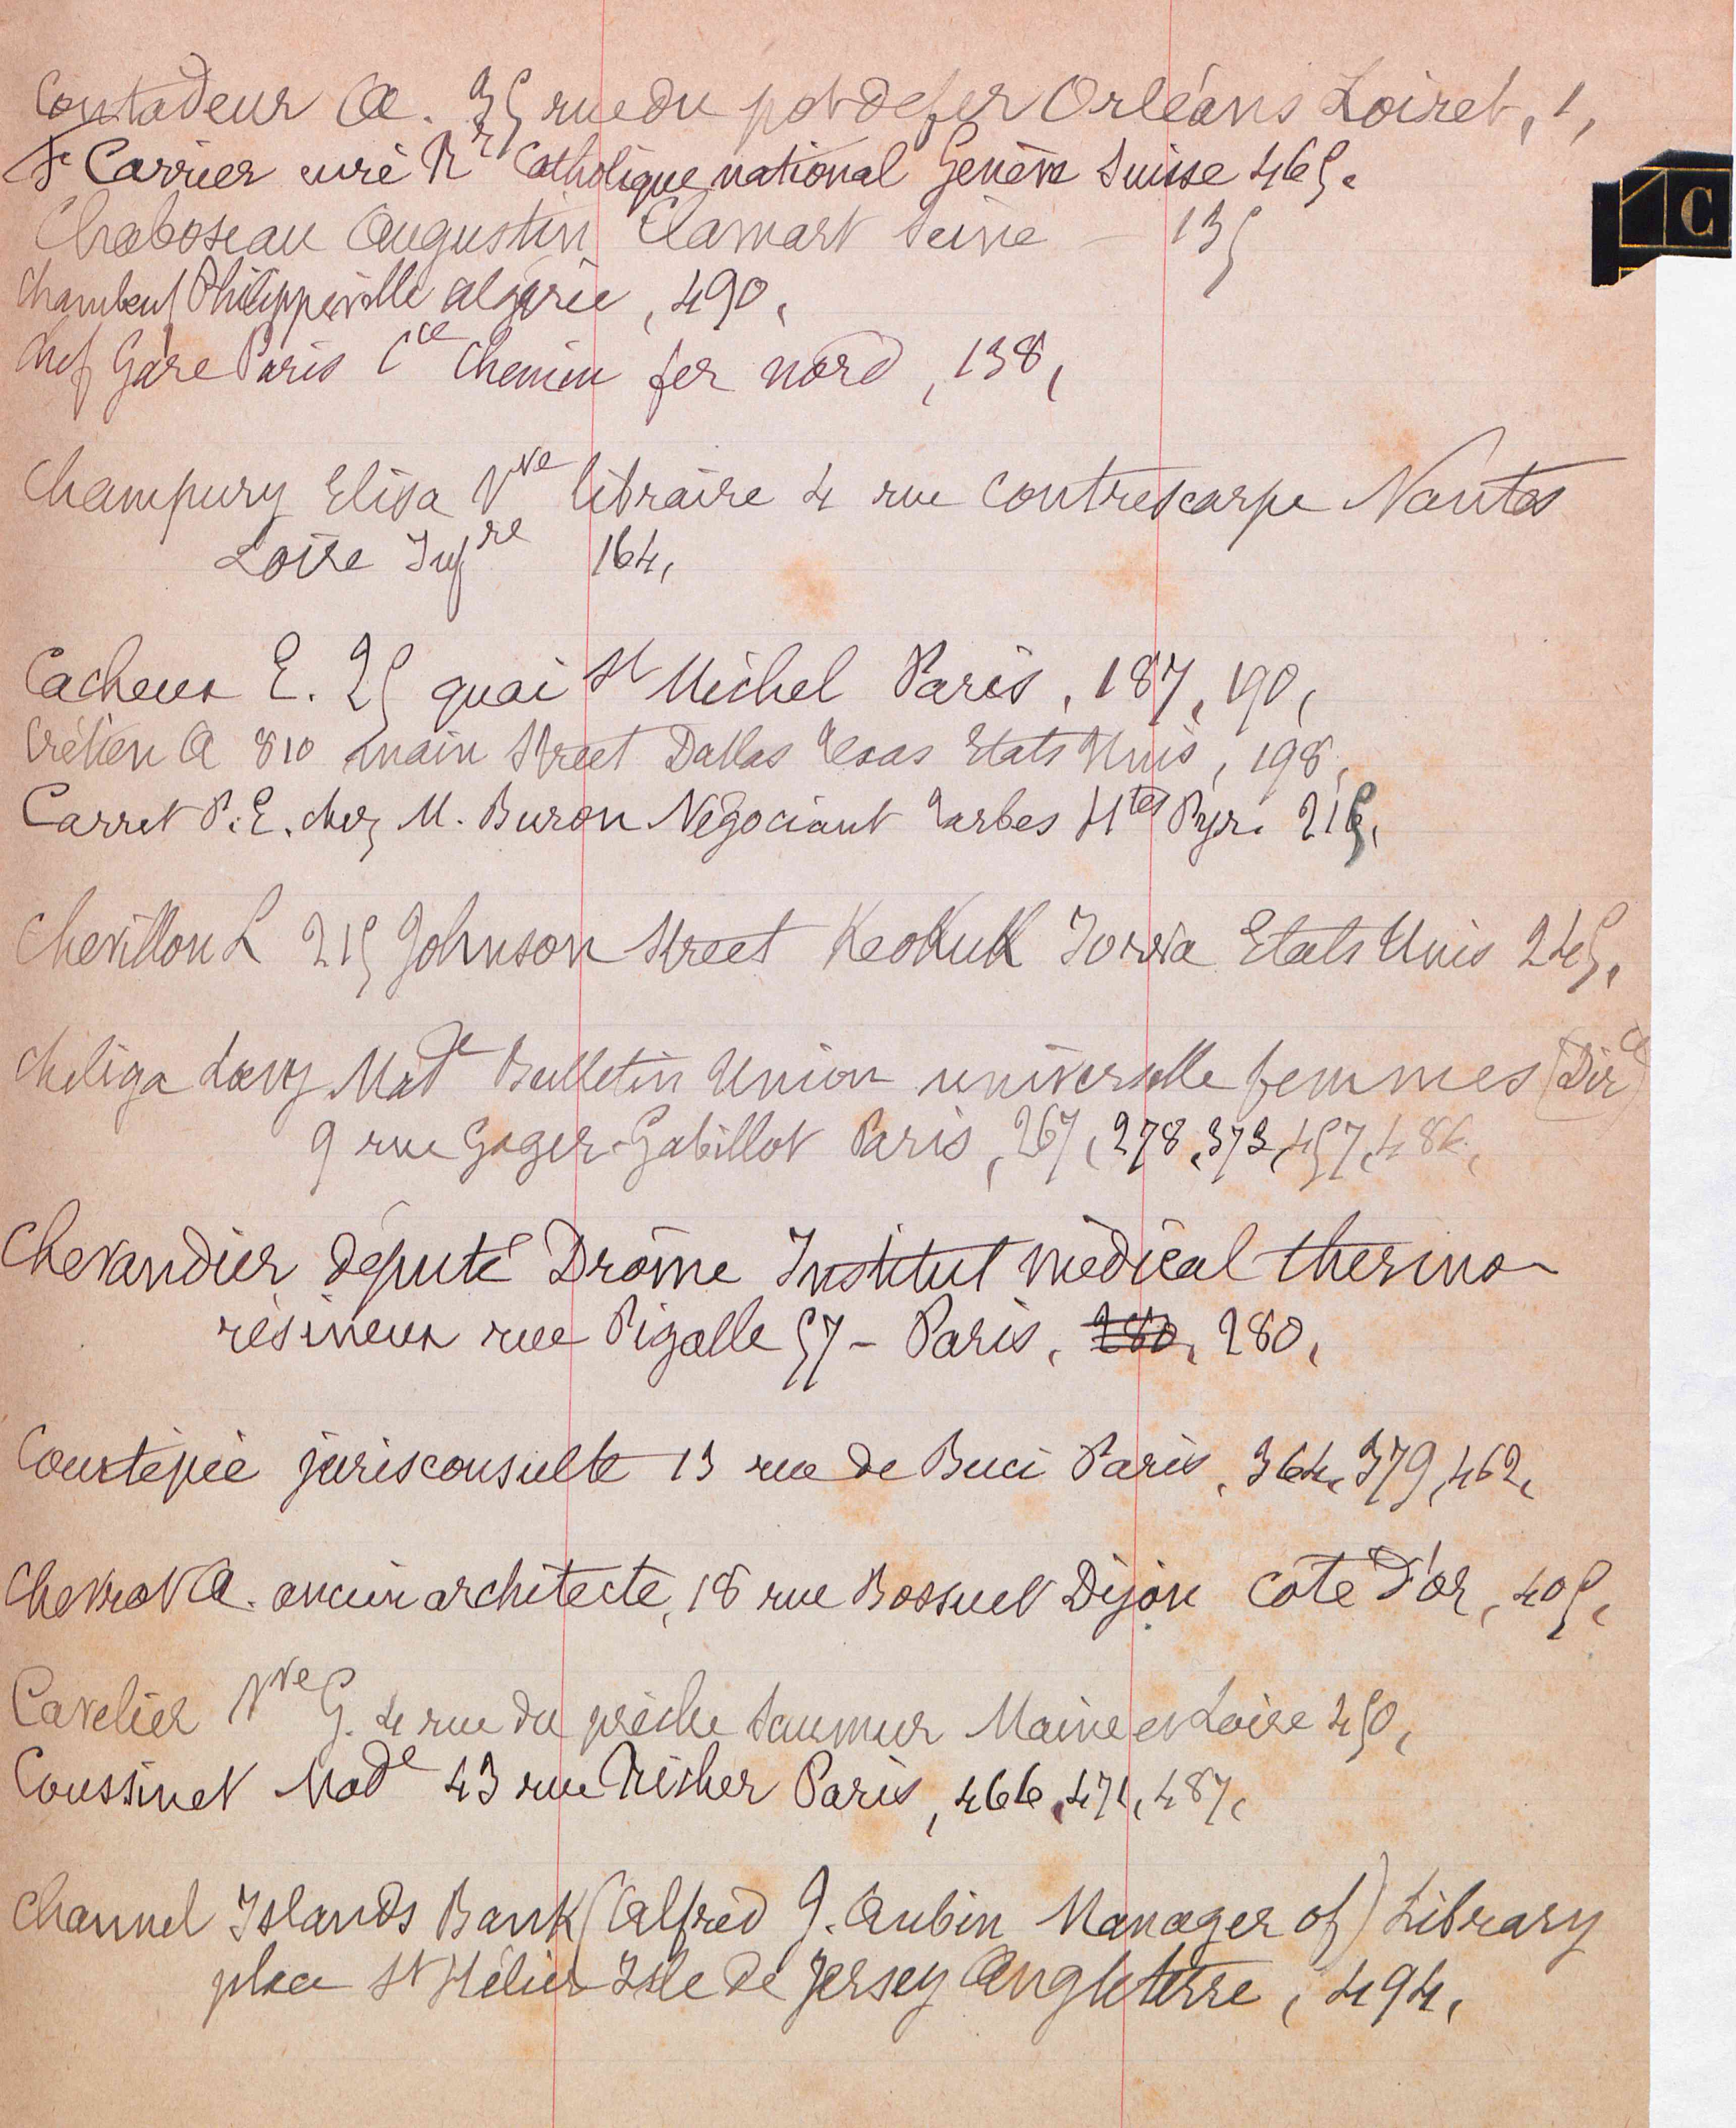 Contadeur A. 35 rue du pot de fer Orléans Loiret, 1,
F Carrier curé Catholique national Genève Suisse 465.
C
Chaboseau Augustin Clamart Seine – 135
Philippeville algérie, 490,
chef Gare Paris Cie Chemin fer nord, 138,
Champury Elisa Vve libraire 4 rue Contrescarpe Nantes
Loire Infre 164,
Cacheux E. 25 quai St Michel Paris, 187, 190,
Crétien A 810 main Street Dallas Texas Etats Unis, 198,
Carret P. E. chez M. Buron Négociant Tarbes Htes Pyr. 215,
Chevillon L 215 Johnson Street Keokuk Iowa Etats Unis 245,
Chéliga Loevy Made Bulletin Union universelle femmes (Dirce)
9 rue Gager-Gabillot Paris, 267, 278, 373, 457, 484,
Chevandier député Drôme Institut médical thermo-
résineux rue Pigalle 57 – Paris, 280, 280,
Courtépée jurisconsulte 13 rue de Buci Paris, 364, 379, 462,
Chevrot A. ancien architecte, 18 rue Bossuet Dijon Côte d'or, 405,
Cavelier Vve G. 4 rue du prêche Saumur Maine et Loire 450,
Coussinet Made 43 rue Richer Paris, 466, 471, 487,
Channel Islands Bank (Alfred J. Aubin Manager of) Library
place St Hélier Isle de Jersey Angleterre, 494,